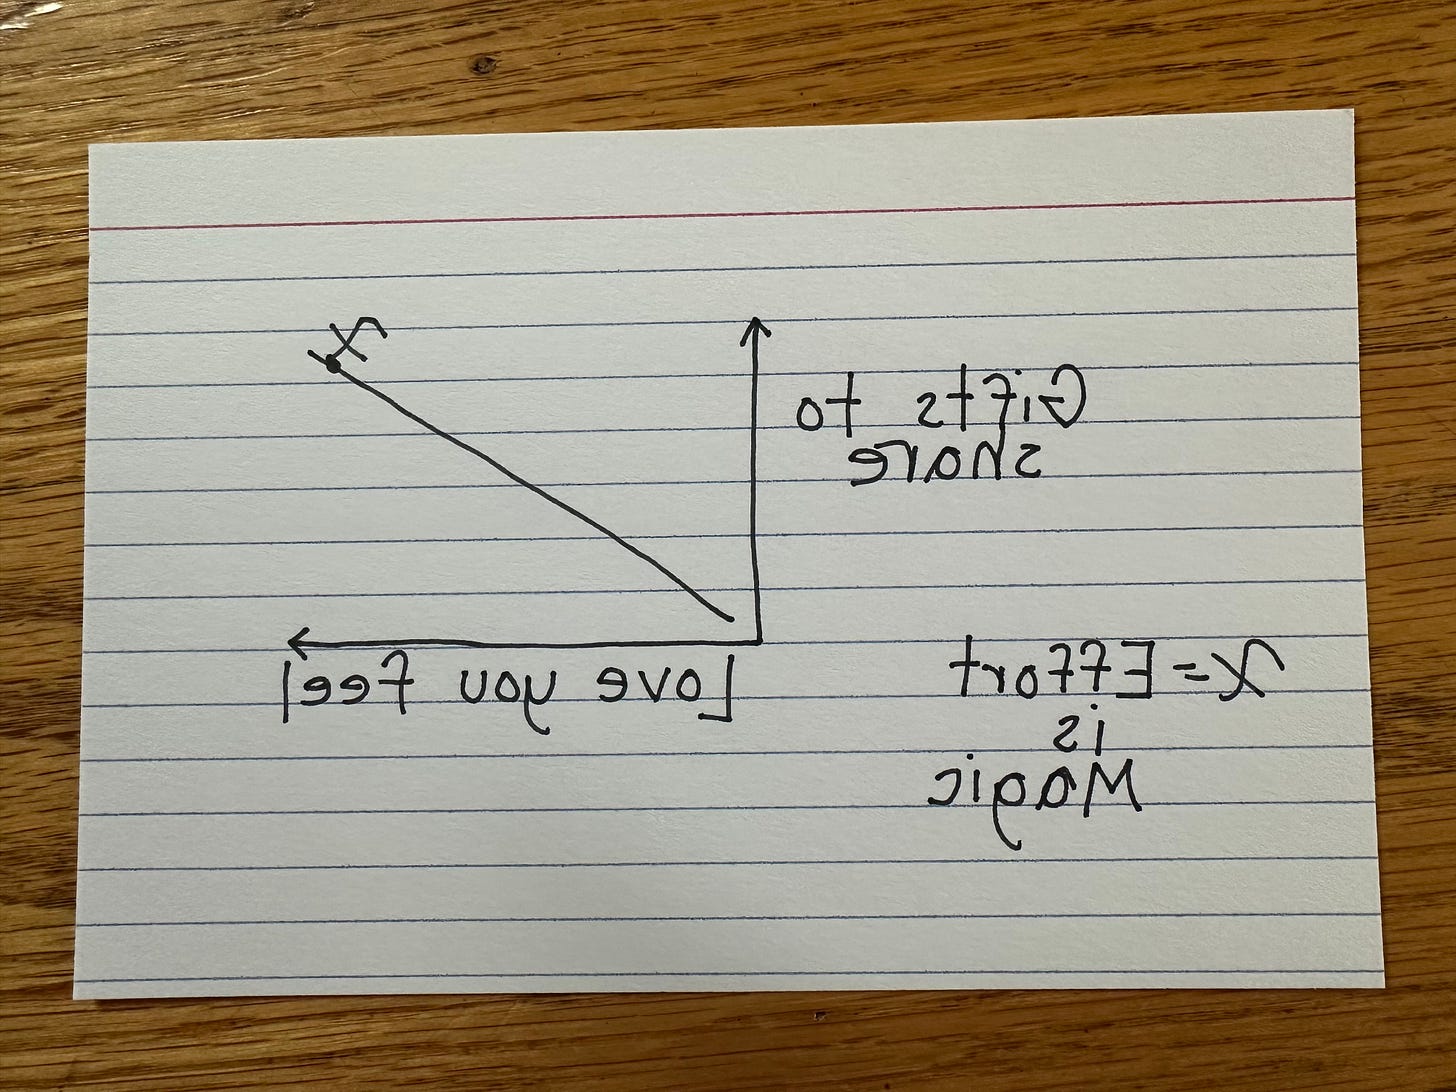 Gifts to
share
X
Love you feel
X = Effort
is
Magic